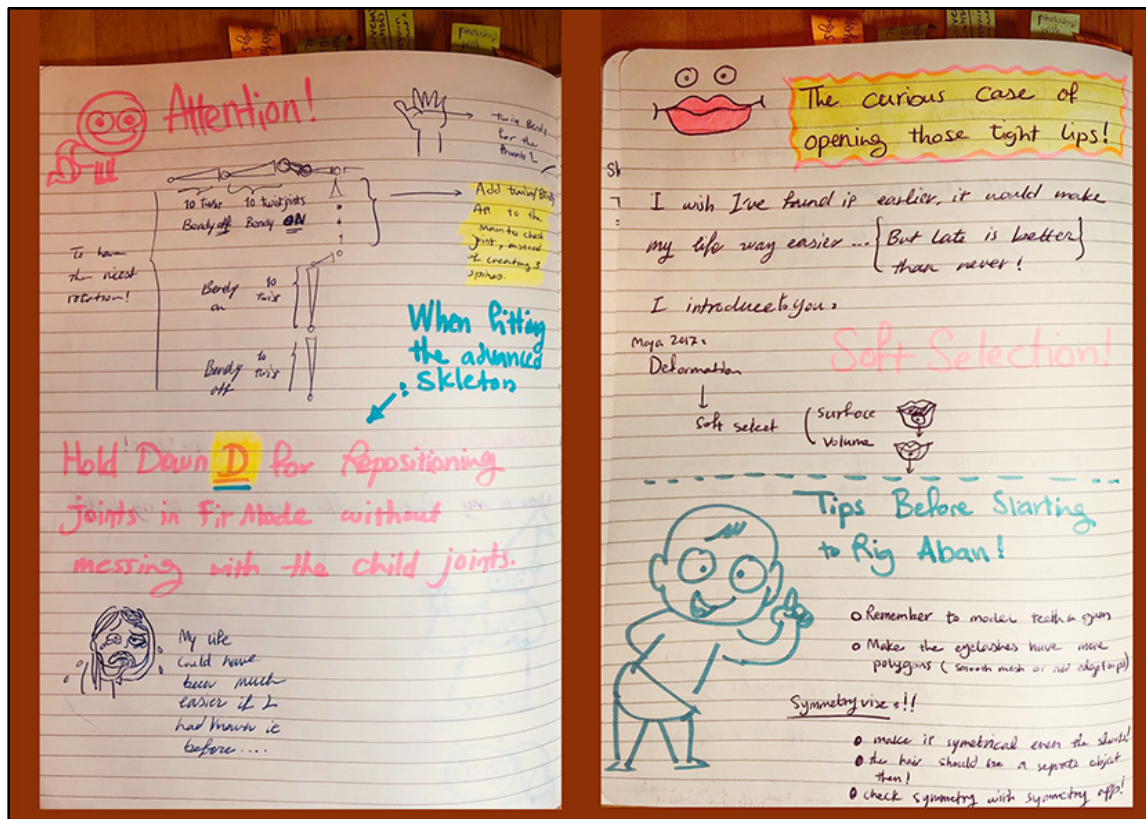 Attention!
twist Bendy
for the
thumb 2
10 twist 10 twist joints
Bendy off Bendy ON
To have
the nicest
rotation!
Add twist/Bendy
to the
joint, instead
of creating 3
spines.
Bendy 10
on twist
Bendy 10
off twist
When fitting
the advanced
skeleton
:
Hold Down D for Repositioning
joints in Fit Mode without
messing with the child joints.
My life
could have
been much
easier if I
had known it
before....
The curious case of
opening those tight lips!
I wish I've found it earlier, it would make
my life way easier ... {But late is better
than never!}
I introduce to you:
Maya 2017:
Soft Selection!
Deformation
Soft select
surface
volume
Tips Before Starting
to Rig Aban!
Remember to model teeth & gum
Make the eyelashes have more
polygons (smooth mesh or add edge loops)
Symmetry vise:!!
make it symetrical even the shorts!
the hair should be a seprate object
then!
check symmetry with symmetry app!